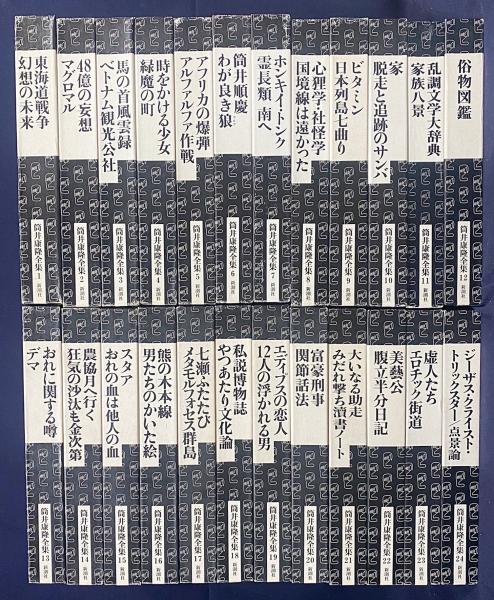 東海道戦争
幻想の未来
筒井康隆全集 1
新潮社
48億の妄想
マグロマル
筒井康隆全集 2
新潮社
馬の首風雲録
ベトナム観光公社
筒井康隆全集 3
新潮社
時をかける少女
緑魔の町
筒井康隆全集 4
新潮社
アフリカの爆弾
アルファルファ作戦
筒井康隆全集 5
新潮社
筒井順慶
わが良き狼
筒井康隆全集 6
新潮社
ホンキイ・トンク
霊長類 南へ
筒井康隆全集 7
新潮社
心狸学・社怪学
国境線は遠かった
筒井康隆全集 8
新潮社
ビタミン
日本列島七曲り
筒井康隆全集 9
新潮社
家
脱走と追跡のサンバ
筒井康隆全集 10
新潮社
乱調文学大辞典
家族八景
筒井康隆全集 11
新潮社
俗物図鑑
筒井康隆全集 12
新潮社
おれに関する噂
デマ
筒井康隆全集 13
新潮社
農協月へ行く
狂気の沙汰も金次第
筒井康隆全集 14
新潮社
スタア
おれの血は他人の血
筒井康隆全集 15
新潮社
熊の木本線
男たちのかいた絵
筒井康隆全集 16
新潮社
七瀬ふたたび
メタモルフォセス群島
筒井康隆全集 17
新潮社
私説博物誌
やつあたり文化論
筒井康隆全集 18
新潮社
エディプスの恋人
12人の浮かれる男
筒井康隆全集 19
新潮社
富豪刑事
関節話法
筒井康隆全集 20
新潮社
大いなる助走
みだれ撃ち瀆書ノート
筒井康隆全集 21
新潮社
美藝公
腹立半分日記
筒井康隆全集 22
新潮社
虚人たち
エロチック街道
筒井康隆全集 23
新潮社
ジーザス・クライスト・
トリックスター/点景論
筒井康隆全集 24
新潮社